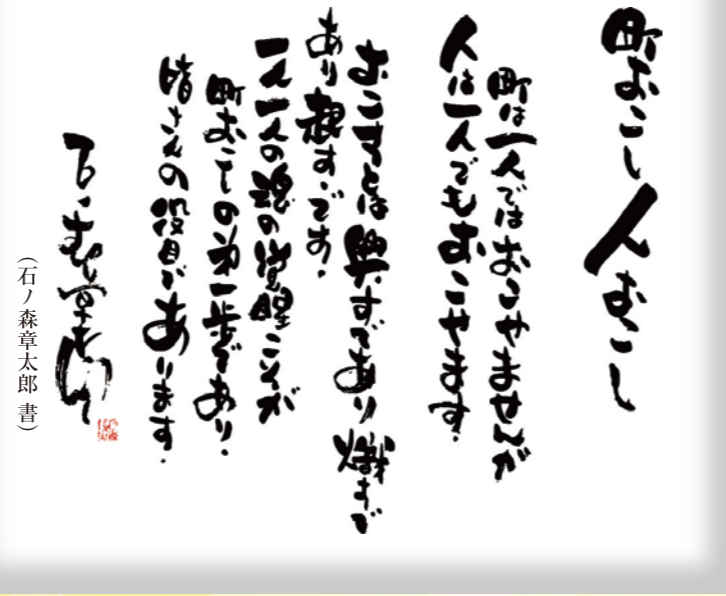 町おこし人おこし
町は一人ではおこせませんが
人は一人でもおこせます。
おこすとは興すであり熾すで
あり起すです。
一人一人の魂の覚醒こそが
町おこしの第一歩であり、
皆さんの役目であります。
石ノ森章太郎
（石ノ森章太郎 書）